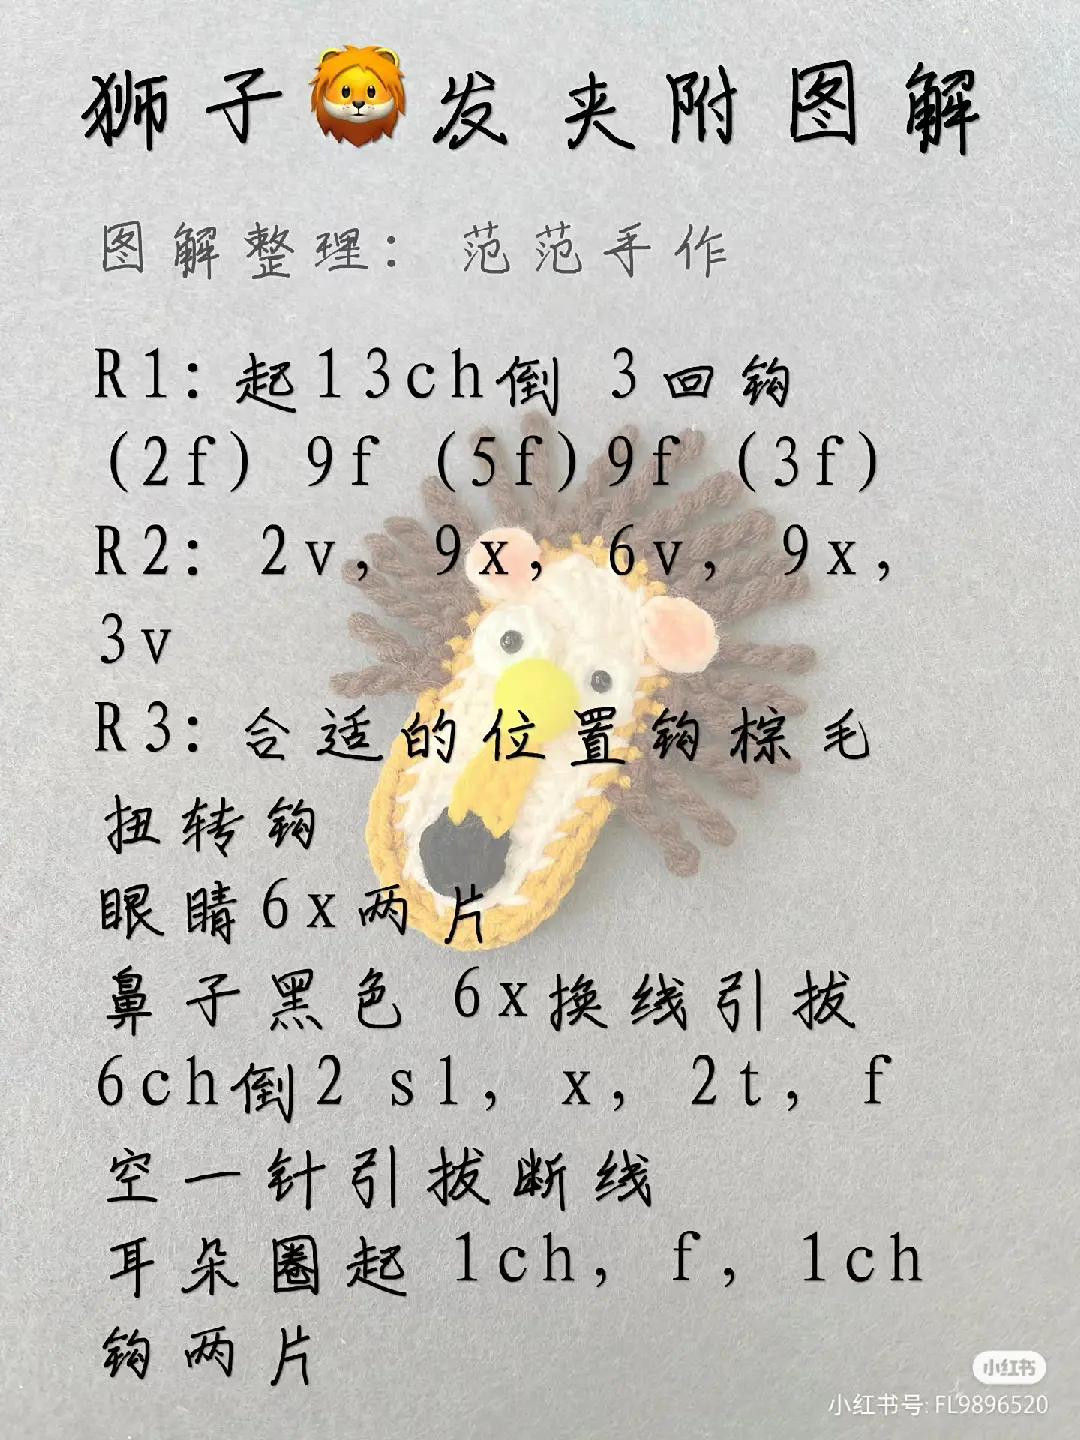 狮子🦁发夹附图解
图解整理：范范手作
R1：起13ch倒 3回钩
(2f) 9f (5f)9f (3f)
R2：2v，9x，6v，9x，
3v
R3：合适的位置钩棕毛
扭转钩
眼睛6x两片
鼻子黑色 6x换线引拔
6ch倒2 sl，x，2t，f
空一针引拔断线
耳朵圈起 1ch，f，1ch
钩两片
小红书
小红书号: FL9896520